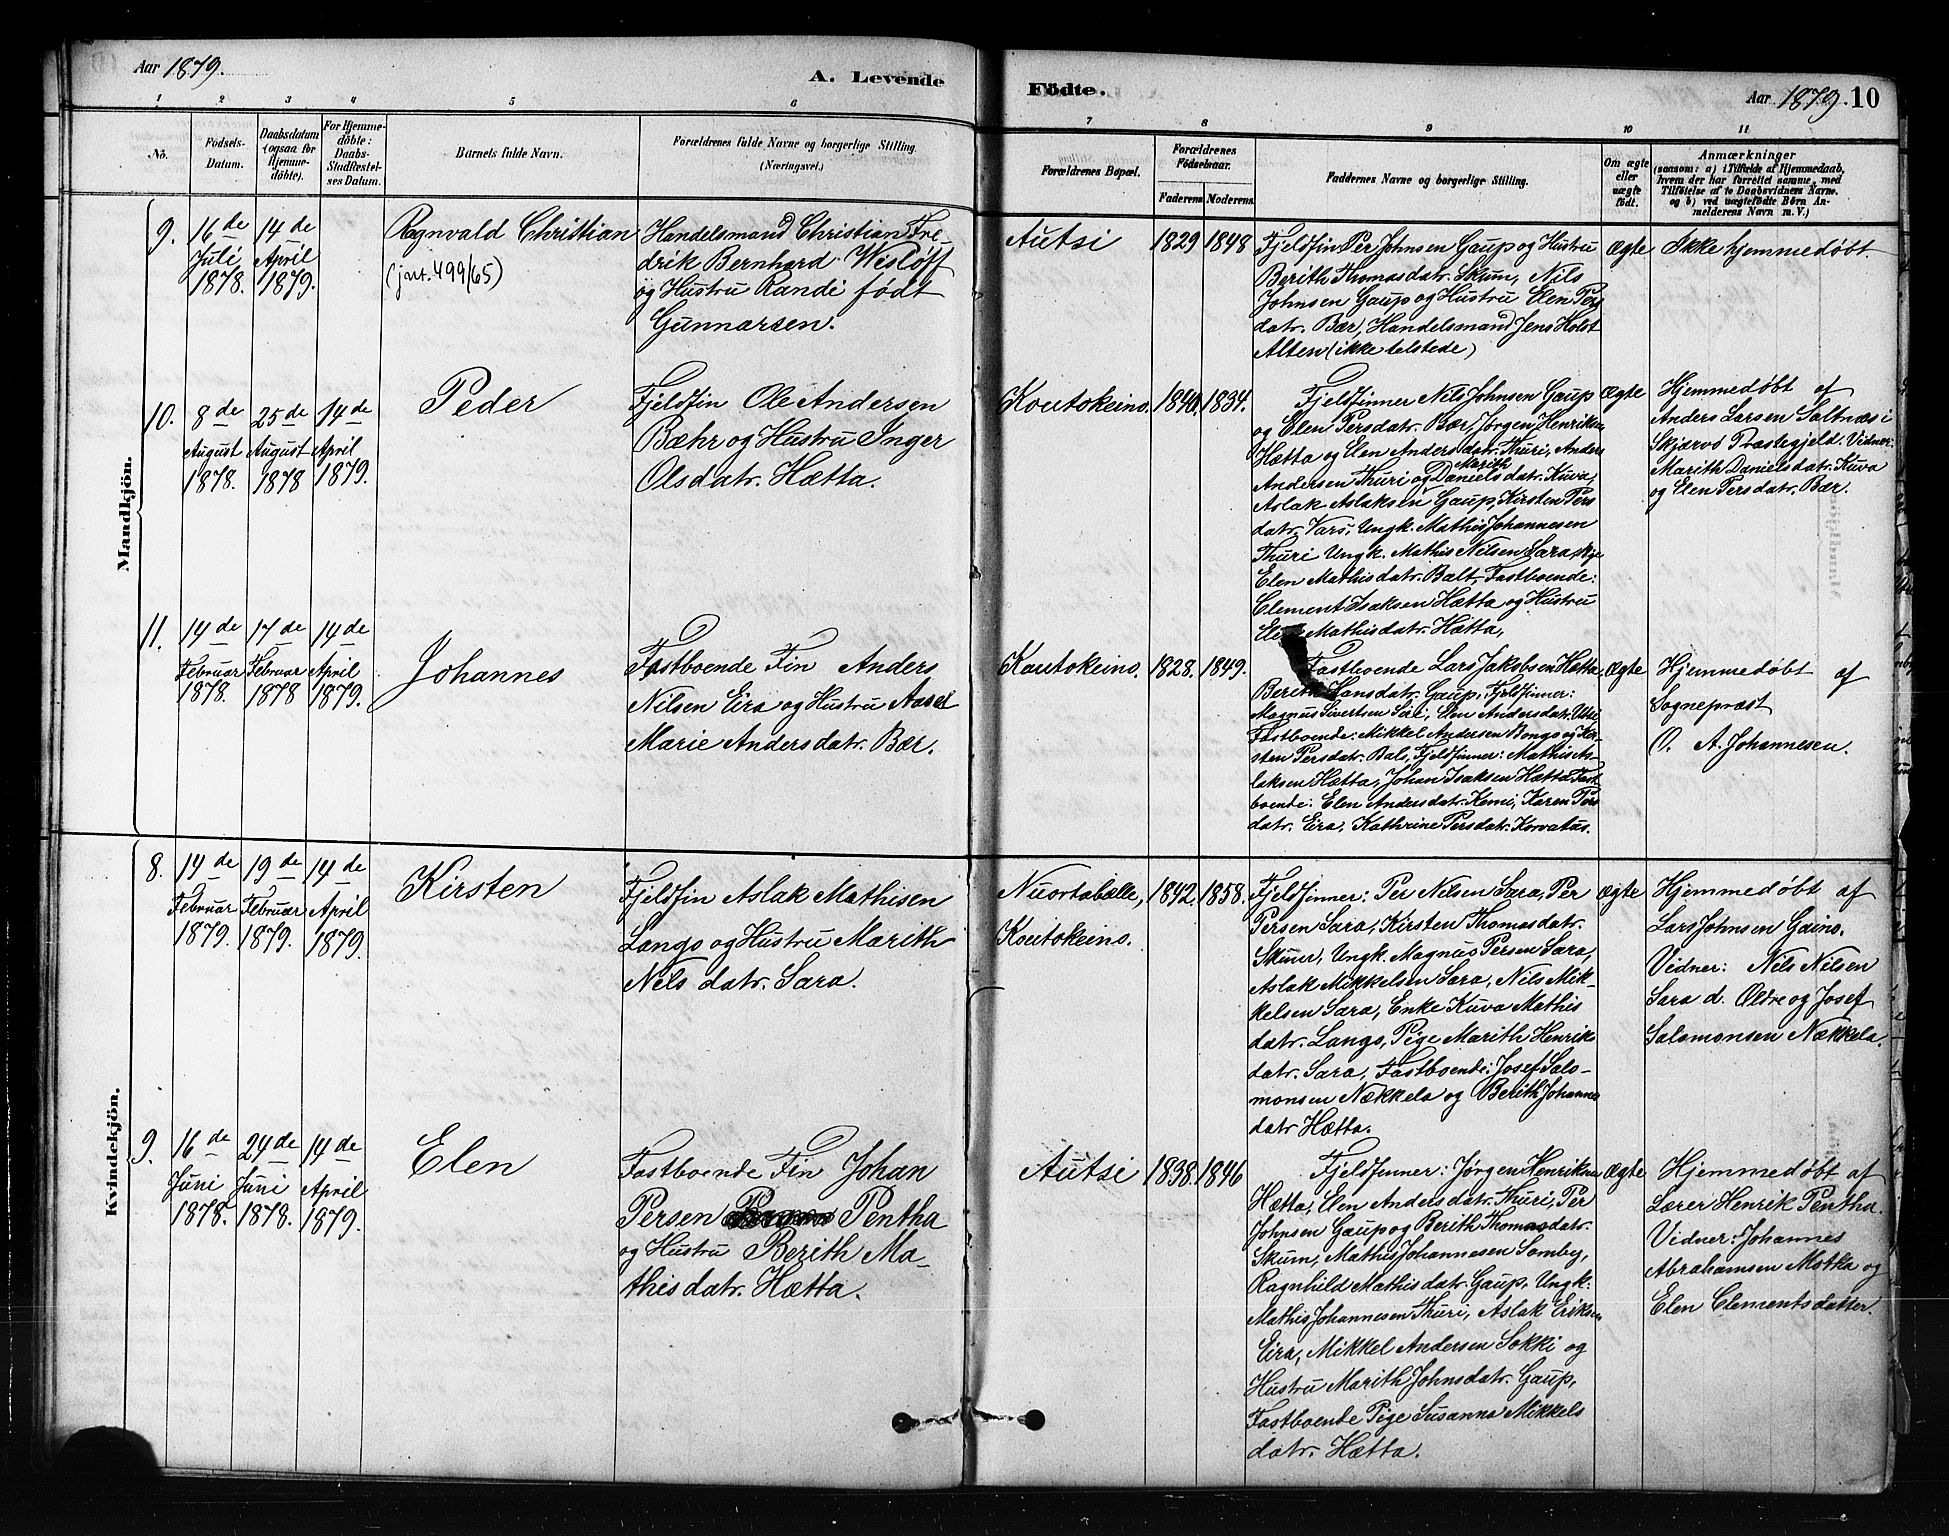 Aar 1879.
A. Levende
Födte.
Aar 1879. 10
1 2 3 4 5 6 7 8 9 10 11
No.
Födsels-
Datum.
Daabsdatum
(ogsaa for
Hjemme-
döbte).
For Hjemme-
döbte:
Daabs-
Stadfæstel-
ses Datum.
Barnets fulde Navn.
Forældrenes fulde Navne og borgerlige Stilling.
(Næringsvei.)
Forældrenes Bopæl.
Forældrenes
Födselsaar.
Faderens Moderens.
Faddernes Navne og borgerlige Stilling.
Om ægte
eller
uægte
födt.
Anmærkninger
(saasom: a) i Tilfælde af Hjemmedaab,
hvem der har forrettet samme, med
Tilföielse af to Daabsvidners Navne,
og b) ved uægtefödte Börn An-
melderens Navn m. V.)
Mandkjön.
9.
16 de
Juli
1878.
14 de
April
1879.
Ragnvald Christian
(jnr. 499/65)
Handelsmand Christian Fre-
drik Bernhard Wisløff
og Hustru Randi født
Gunnarsen.
Autsi
1829 1848
Fjeldfin Per Johnsen Gaup og Hustru
Berith Thomasdatr. Skum, Nils
Johnsen Gaup og Hustru Elen Pers
datr. Bær, Handelsmand Jens Holst
Alten (ikke tilstede)
Ægte
Ikke hjemmedøbt.
10.
8 de
August
1878.
25 de
August
1878
14 de
April
1879.
Peder
Fjeldfin Ole Andersen
Bæhr og Hustru Inger
Olsdatr. Hætta.
Koutokeino.
1840. 1834.
Fjeldfinner Nils Johnsen Gaup
og Elen Persdatr. Bær, Jørgen Henriksen
Hætta og Elen Andersdatr. Thuri, Anders
Andersen Thuri og Marith Danielsdatr. Kuva,
Aslak Aslaksen Gaup, Kirsten Pers
datr. Vars, Ungk. Mathis Johannesen
Thuri Ungk. Mathis Nilsen Sara, Pige
Elen Mathisdatr. Balt, Fastboende:
Clement Isaksen Hætta og Hustru
Elen Mathisdatr. Hætta,
Ægte
Hjemmedøbt af
Anders Larsen Saltnæs i
Skjærvø Præstegjeld. Vidner:
Marith Danielsdatr. Kuva
og Elen Persdatr. Bær.
11.
14 de
Februar
1878.
17 de
Februar
1878
14 de
April
1879.
Johannes
Fastboende Fin Anders
Nilsen Eira og Hustru Aasel
Marie Andersdatr. Bær.
Koutokeino.
1828. 1849.
Fastboende Lars Jakobsen Hætta,
Berith Hansdatr. Gaup, Fjeldfinner:
Magnus Sivertsen Siri, Elen Andersdatr.
Fastboende: Mikkel Andersen Bongo og Kir-
sten Persdatr. Bals, Fjeldfinner: Mathis As-
laksen Hætta, Johan Isaksen Hætta Fast
boende: Elen Andersdatr. Kemi, Karen Pers
datr. Eira, Kathrine Persdatr. Korvatus.
Ægte
Hjemmedøbt af
Sognepræst
O. A. Johannesen.
Kvindekjön.
8.
14 de
Februar
1879.
19 de
Februar
1879.
14 de
April
1879.
Kirsten
Fjeldfin Aslak Mathisen
Lango og Hustru Marith
Nils datr. Sara.
Nuortabælle,
Koutokeino.
1842. 1858.
Fjeldfinner: Per Nilsen Sara, Per
Persen Sara, Kirsten Thomasdatr.
Skum, Ungk. Magnus Persen Sara,
Aslak Mikkelsen Sara, Nils Mik-
kelsen Sara, Enke Kuva Mathis
datr. Lango, Pige Marith Henriks
datr. Sara, Fastboende: Josef Salo-
monsen Nækkela og Berith Johannes
datr. Hætta.
Ægte
Hjemmedøbt af
Lars Johnsen Gaino.
Vidner: Nils Nilsen
Sara d. Ældre og Josef
Salomonsen Nækkela.
9.
16 de
Juni
1878.
24 de
Juni
1878.
14 de
April
1879.
Elen
Fastboende Fin Johan
Persen Pentha
og Hustru Berith Ma-
this datr. Hætta.
Autsi
1838. 1846
Fjeldfinner: Jørgen Henriksen
Hætta, Elen Andersdatr. Thuri, Per
Johnsen Gaup og Berith Thomasdatr.
Skum, Mathis Johannesen Somby,
Ragnhild Mathisdatr. Gaup, Ungk:
Mathis Johannesen Thuri, Aslak Eriksen
Eira, Mikkel Andersen Sokki og
Hustru Marith Johnsdatr. Gaup,
Fastboende Pige Susanna Mikkels
datr. Hætta.
Ægte
Hjemmedøbt af
Lærer Henrik Pentha.
Vidner: Johannes
Abrahamsen Motka og
Elen Clementsdatter.